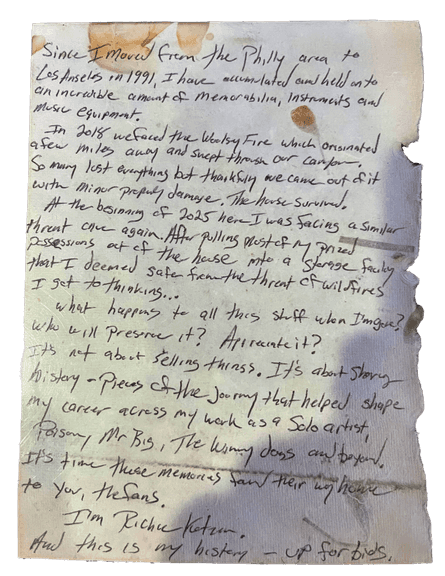 Since I moved from the Philly area to
Los Angeles in 1991, I have accumulated and held onto
an incredible amount of memorabilia, Instruments and
music equipment.
In 2018 we faced the Woolsey Fire which originated
a few miles away and swept through our canyon.
So many lost everything but thankfully we came out of it
with minor property damage. The house survived.
At the beginning of 2025 here I was facing a similar
threat once again. After pulling most of my prized
possessions out of the house into a storage facility
that I deemed safe from the threat of wildfires
I got to thinking...
what happens to all this stuff when I'm gone?
who will preserve it? Appreciate it?
It's not about selling things. It's about sharing
history - Pieces of the journey that helped shape
my career across my work as a Solo artist,
Poison, Mr Big, The Winery dogs and beyond.
It's time these memories find their way home
to you, the fans.
I'm Richie Kotzen.
And this is my history - up for bids.